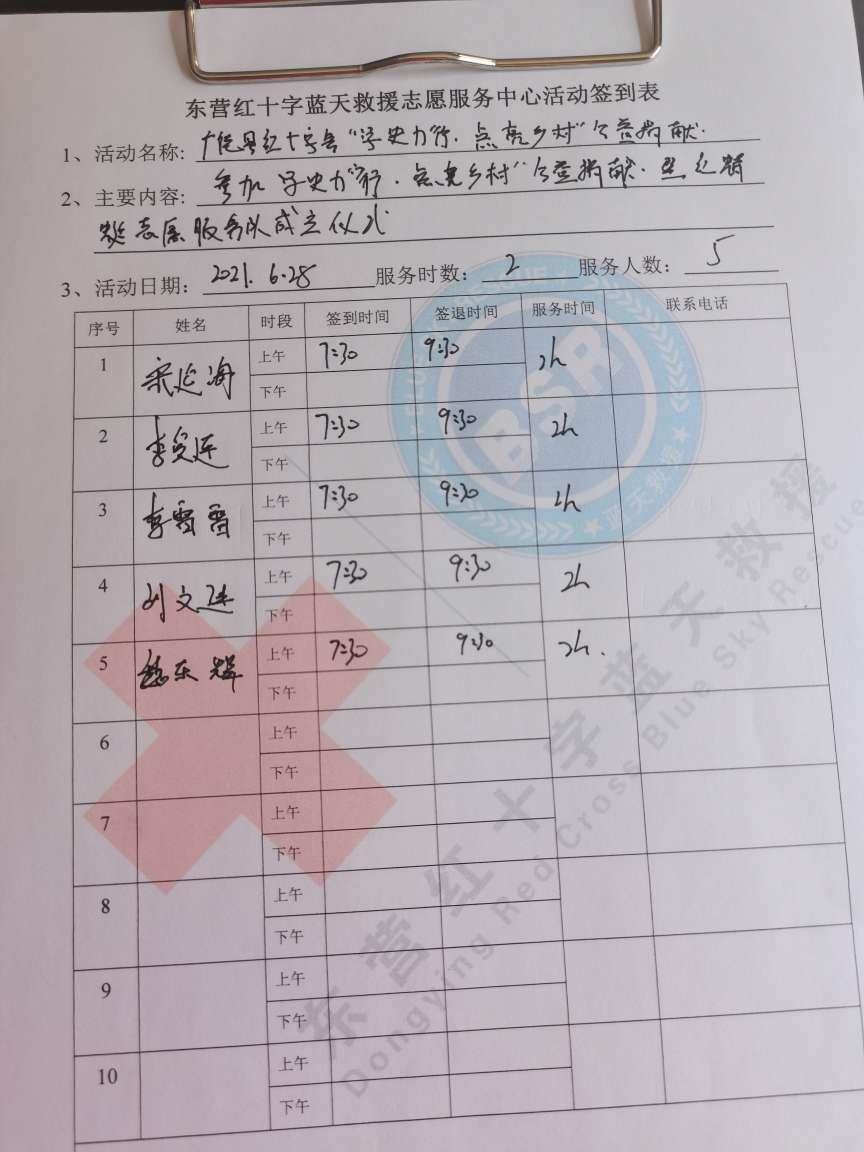 东营红十字蓝天救援志愿服务中心活动签到表
1、活动名称: 广饶县红十字会“学史力行.点亮乡村”公益捐献.
2、主要内容: 参加“学史力行.点亮乡村”公益捐献.
志愿服务队成立仪式
3、活动日期: 2021.6.28 服务时数: 2 服务人数: 5
序号 姓名 时段 签到时间 签退时间 服务时间 联系电话
1 宋延海 上午 7:30 9:30 2h
下午
2 李 上午 7:30 9:30 2h
下午
3 李雷雷 上午 7:30 9:30 2h
下午
4 刘文进 上午 7:30 9:30 2h
下午
5 东辉 上午 7:30 9:30 2h.
下午
6 上午
下午
7 上午
下午
8 上午
下午
9 上午
下午
10 上午
下午
BSR
蓝天救援
东营红十字蓝天救援
Dongying Red Cross Blue Sky Rescue